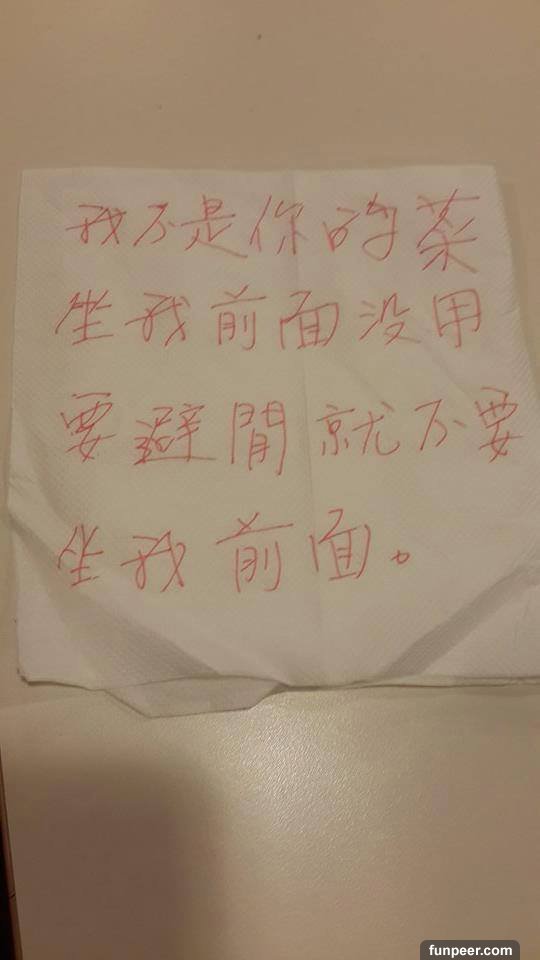 我不是你的菜
坐我前面没用
要避開就不要
坐我前面。
funpeer.com